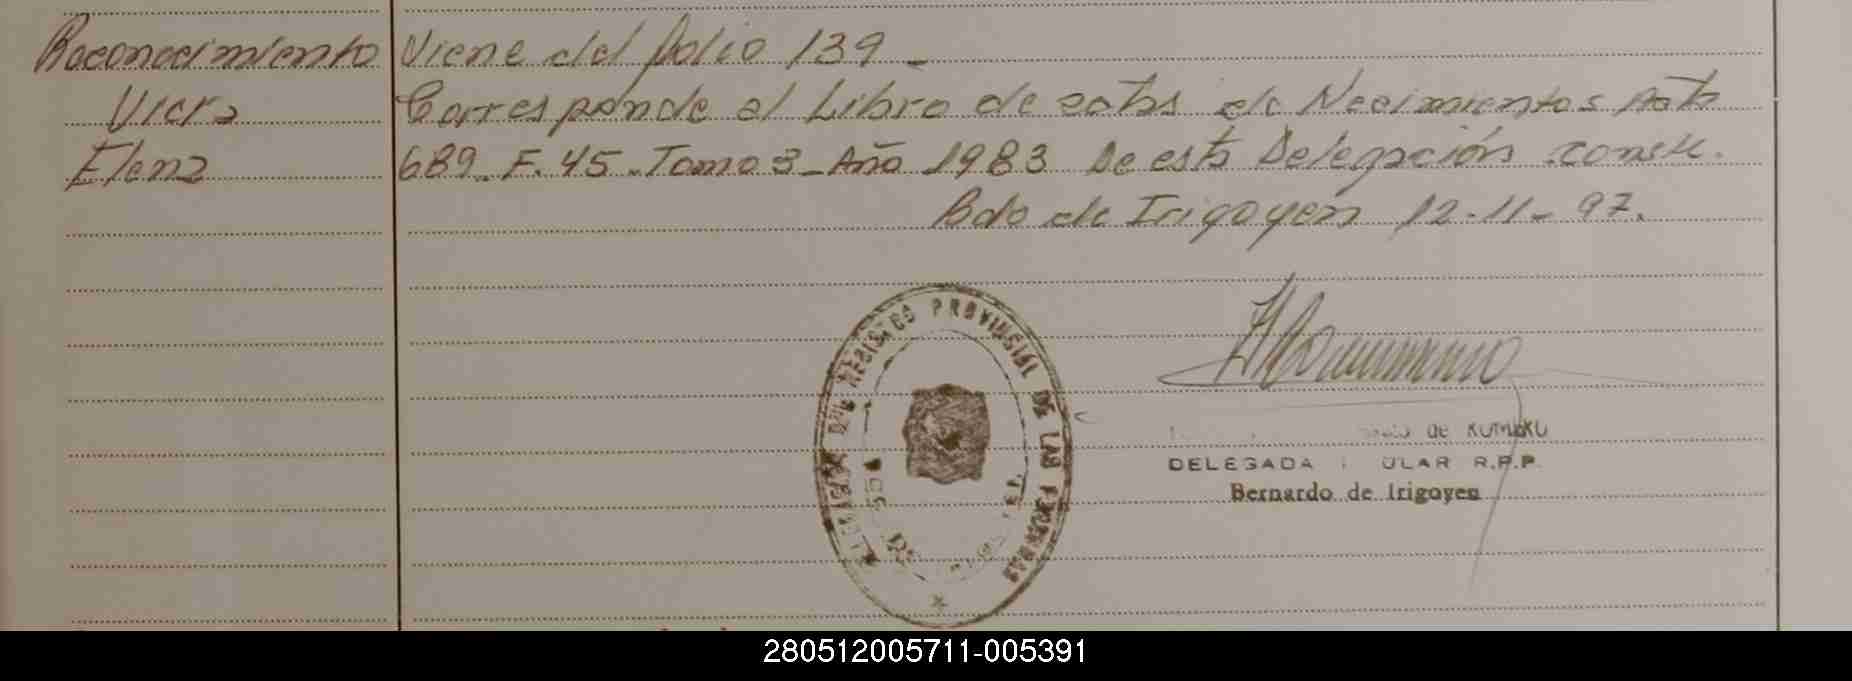 Reconocimiento
Viera
Elena
Viene del folio 139 -
Corresponde al Libro de actas de Nacimientos Acta
689. F. 45 - Tomo 3 - Año 1983 De esta Delegación conste.
Bdo de Irigoyen 12-11-97.
REGISTRO PROVINCIAL DE LAS PERSONAS
de
DELEGADA R.P.P.
Bernardo de Irigoyen
280512005711-005391